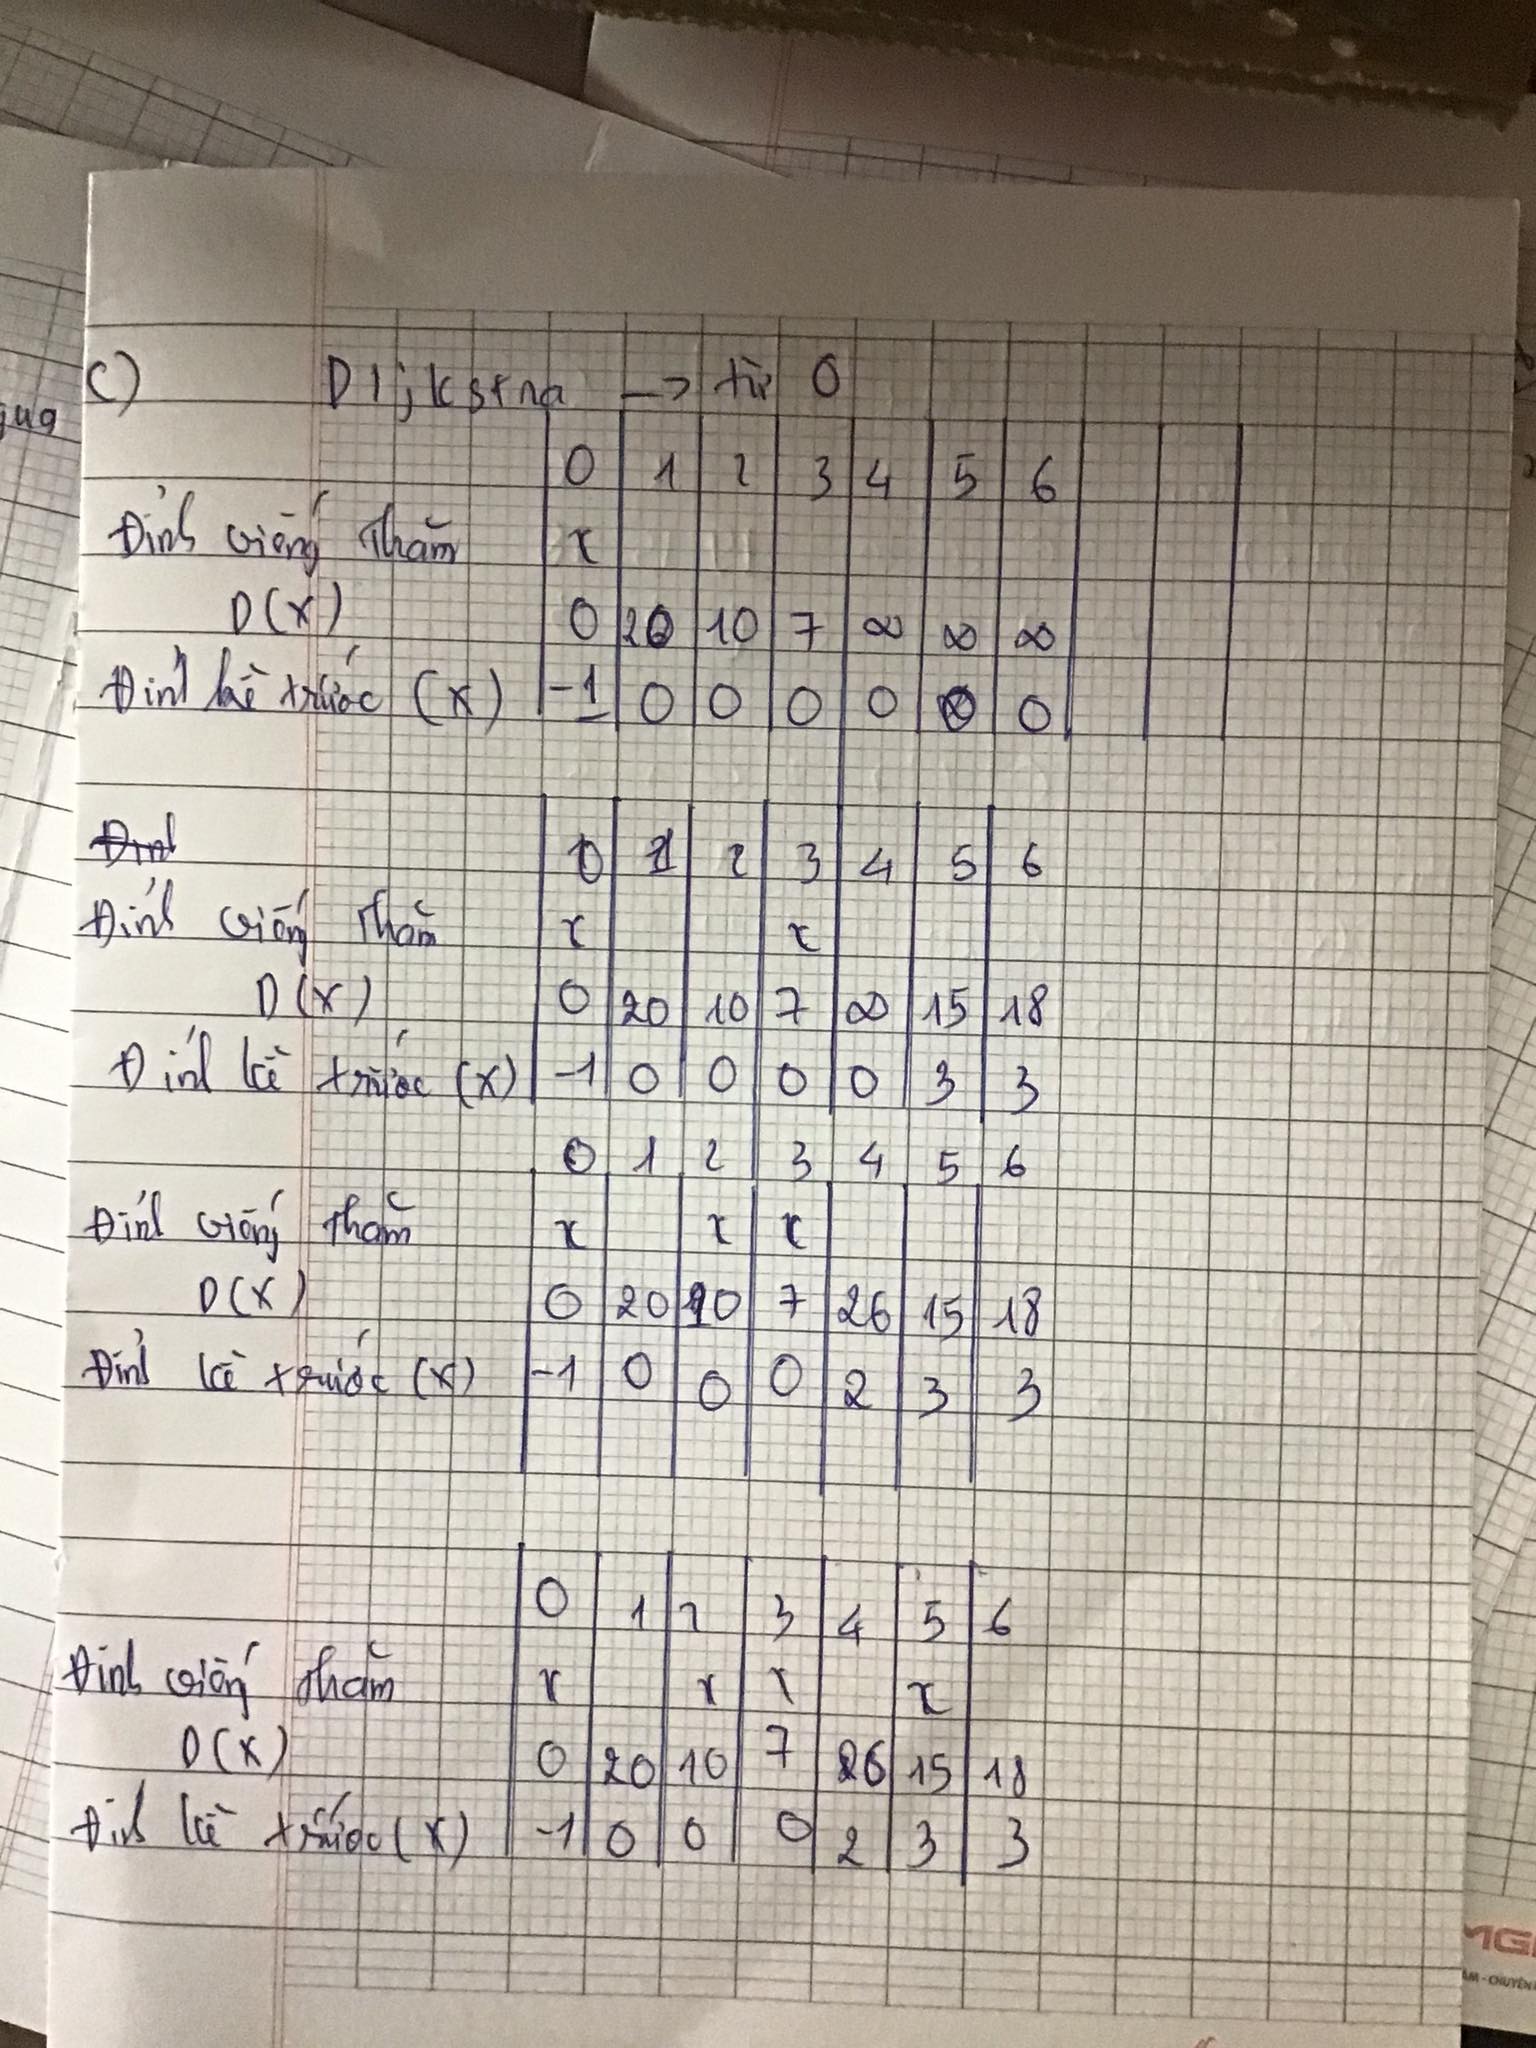 c) Dijkstra -> từ 0
0 1 2 3 4 5 6
Đỉnh viếng thăm x
D(x) 0 20 10 7 ∞ ∞ ∞
Đỉnh kề trước (x) -1 0 0 0 0 0 0
Đỉnh
0 1 2 3 4 5 6
Đỉnh viếng thăm x x
D(x) 0 20 10 7 ∞ 15 18
Đỉnh kề trước (x) -1 0 0 0 0 3 3
0 1 2 3 4 5 6
Đỉnh viếng thăm x x x
D(x) 0 20 10 7 26 15 18
Đỉnh kề trước (x) -1 0 0 0 2 3 3
0 1 2 3 4 5 6
Đỉnh viếng thăm x x x x
D(x) 0 20 10 7 26 15 18
Đỉnh kề trước (x) -1 0 0 0 2 3 3